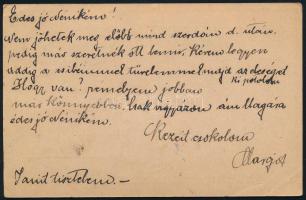 Édes jó Nénikém!
Nem jöhetek meg előbb mind szerdán d. után,
pedig más szeretnék ott lenni. Kérem legyen
addig a csibémmel türelemmel majd az deséget
ki pótolom
Hogy van? remélyem jobban
már könnyebben. Csak vigyázzon ám Magára
édes jó Nénikém.
Kezeit csókolom
Margit
Janit tisztelem. —